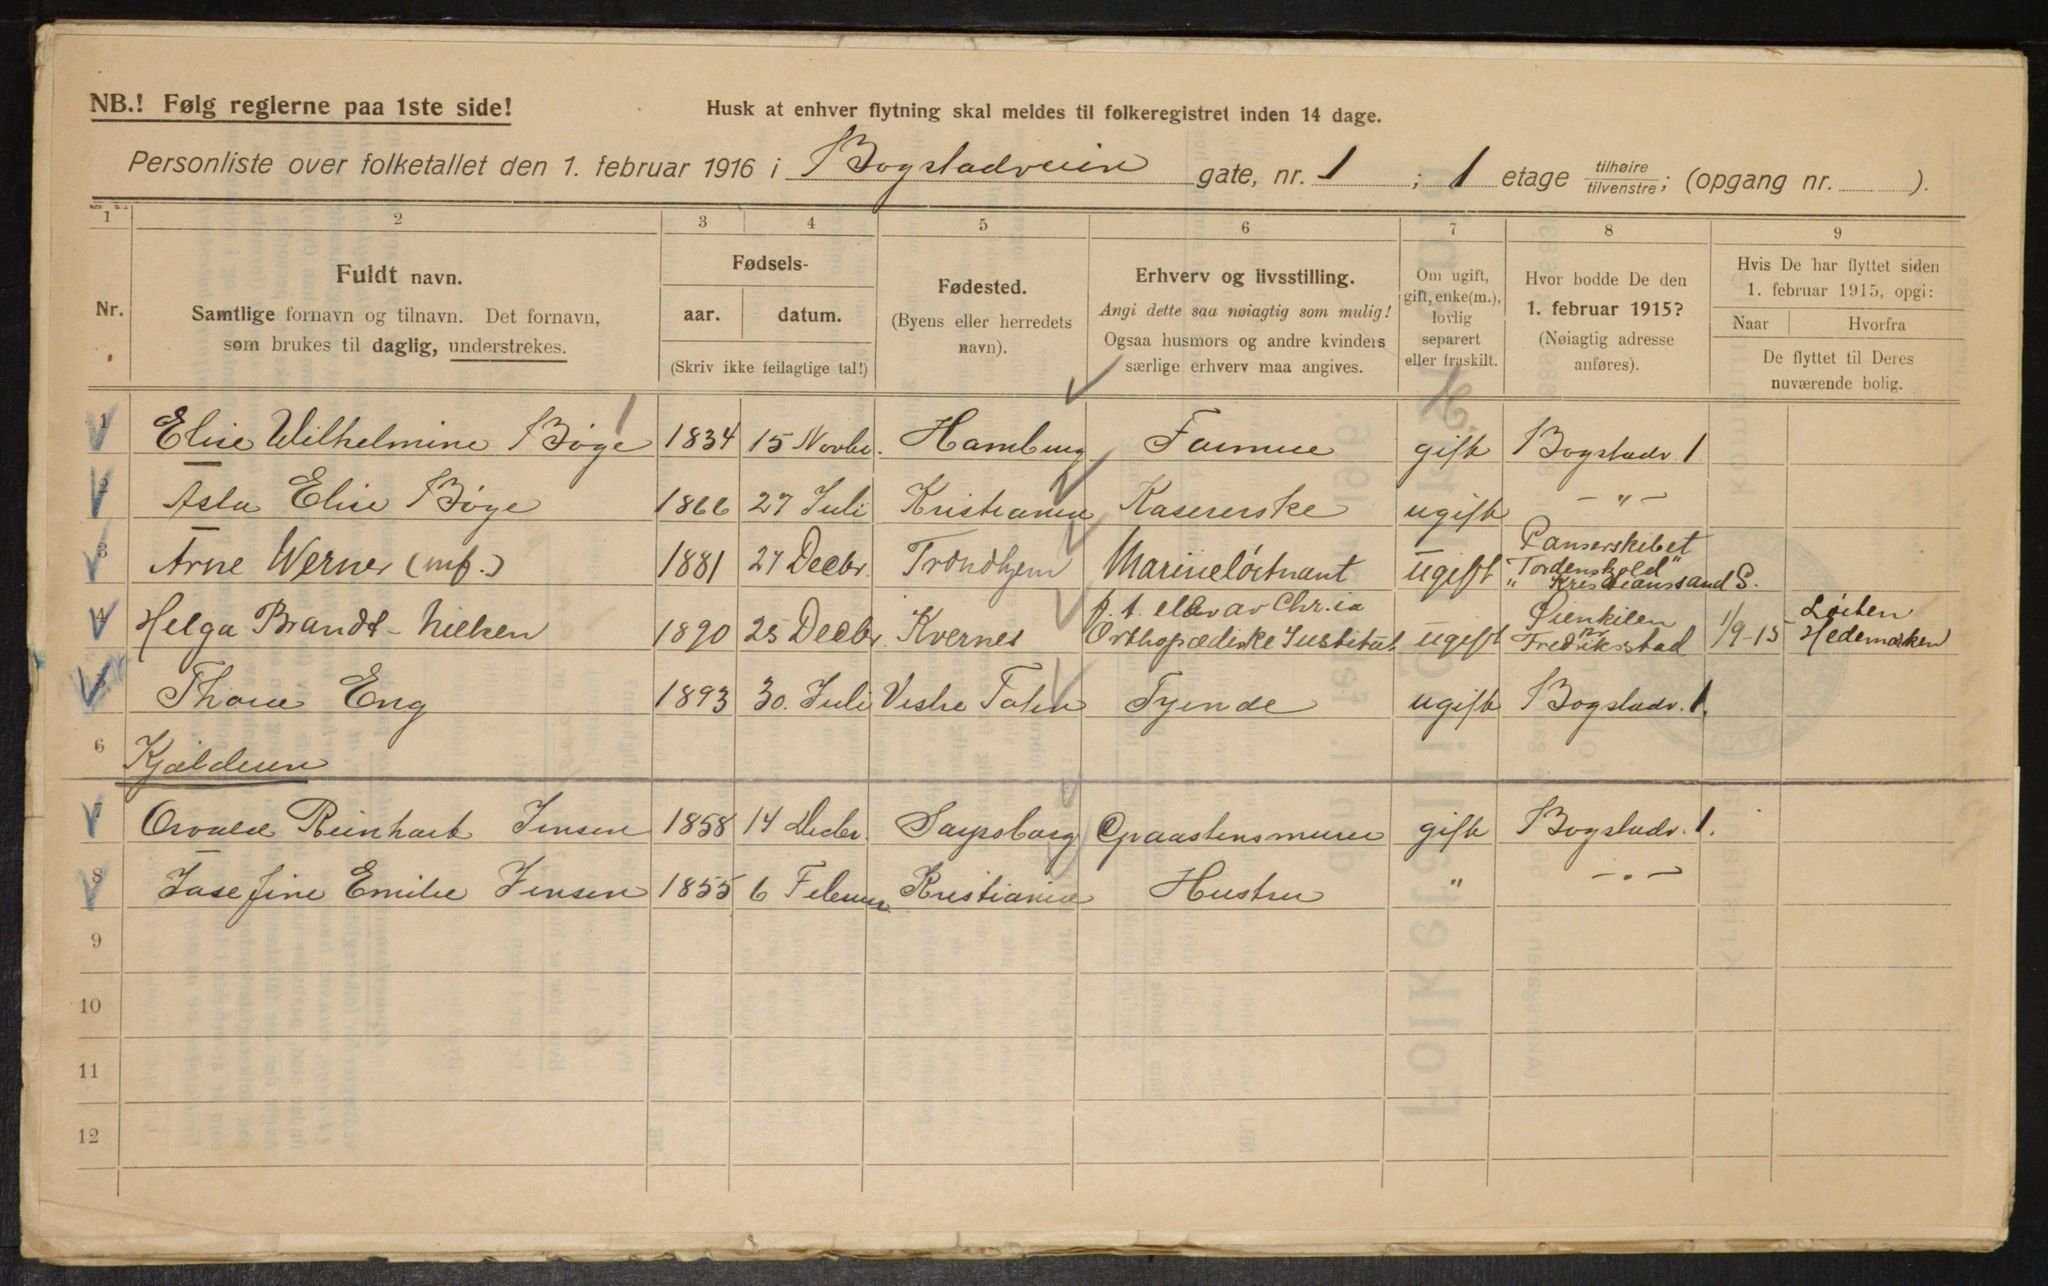 NB.! Følg reglerne paa 1ste side!
Husk at enhver flytning skal meldes til folkeregistret inden 14 dage.
Personliste over folketallet den 1. februar 1916 i Bogstadveien gate, nr. 1 ; 1 etage tilhøire/tilvenstre; (opgang nr. ).
1 2 3 4 5 6 7 8 9
Nr.
Fuldt navn.
Samtlige fornavn og tilnavn. Det fornavn,
som brukes til daglig, understrekes.
Fødsels-
aar. datum.
(Skriv ikke feilagtige tal!)
Fødested.
(Byens eller herredets
navn).
Erhverv og livsstilling.
Angi dette saa nøiagtig som mulig!
Ogsaa husmors og andre kvinders
særlige erhverv maa angives.
Om ugift,
gift, enke(m.),
lovlig
separert
eller fraskilt.
Hvor bodde De den
1. februar 1915?
(Nøiagtig adresse
anføres).
Hvis De har flyttet siden
1. februar 1915, opgi:
Naar Hvorfra
De flyttet til Deres
nuværende bolig.
1 Elise Wilhelmine Bøge 1834 15 Novbr. Hamburg gift Bogstadv. 1
2 Asta Elise Bøge 1866 27 Juli Kristiania Kasererske ugift — " —
3 Arne Werner (mf.) 1881 27 Decbr. Trondhjem Marineløitnant ugift Panserskibet
"Tordenskold"
Kristianssand S.
4 Helga Brandt-Nielsen 1890 25 Decbr. Kvernes p. t. elev av Chr.ia
Orthopædiske Institut ugift Øienkilen
pr
Fredriksstad 1/9-15 Løiten
Hedemarken
5 Thora Eng 1893 30. Juli Vestre Toten Tjende ugift Bogstadv. 1.
6 Kjælderen
7 Osvald Reinhart Jensen 1858 14 Decbr. Sarpsborg Graastensmurer gift Bogstadv. 1.
8 Josefine Emilie Jensen 1855 6 Februar Kristiania Hustru " — " —
9
10
11
12